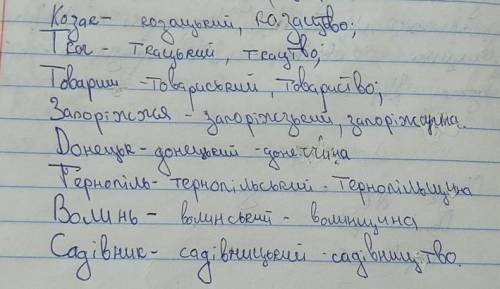 Козак- козацький, козацтво;
Ткач - ткацький, ткацтво;
Товариш -товариський, товариство;
Запоріжжя - запорізький, запоріжчина.
Донецьк-донецький -донеччина
Тернопіль-тернопільський - Тернопільщина
Волинь - волинський - волинщина
Садівник- садівницький -садівництво.